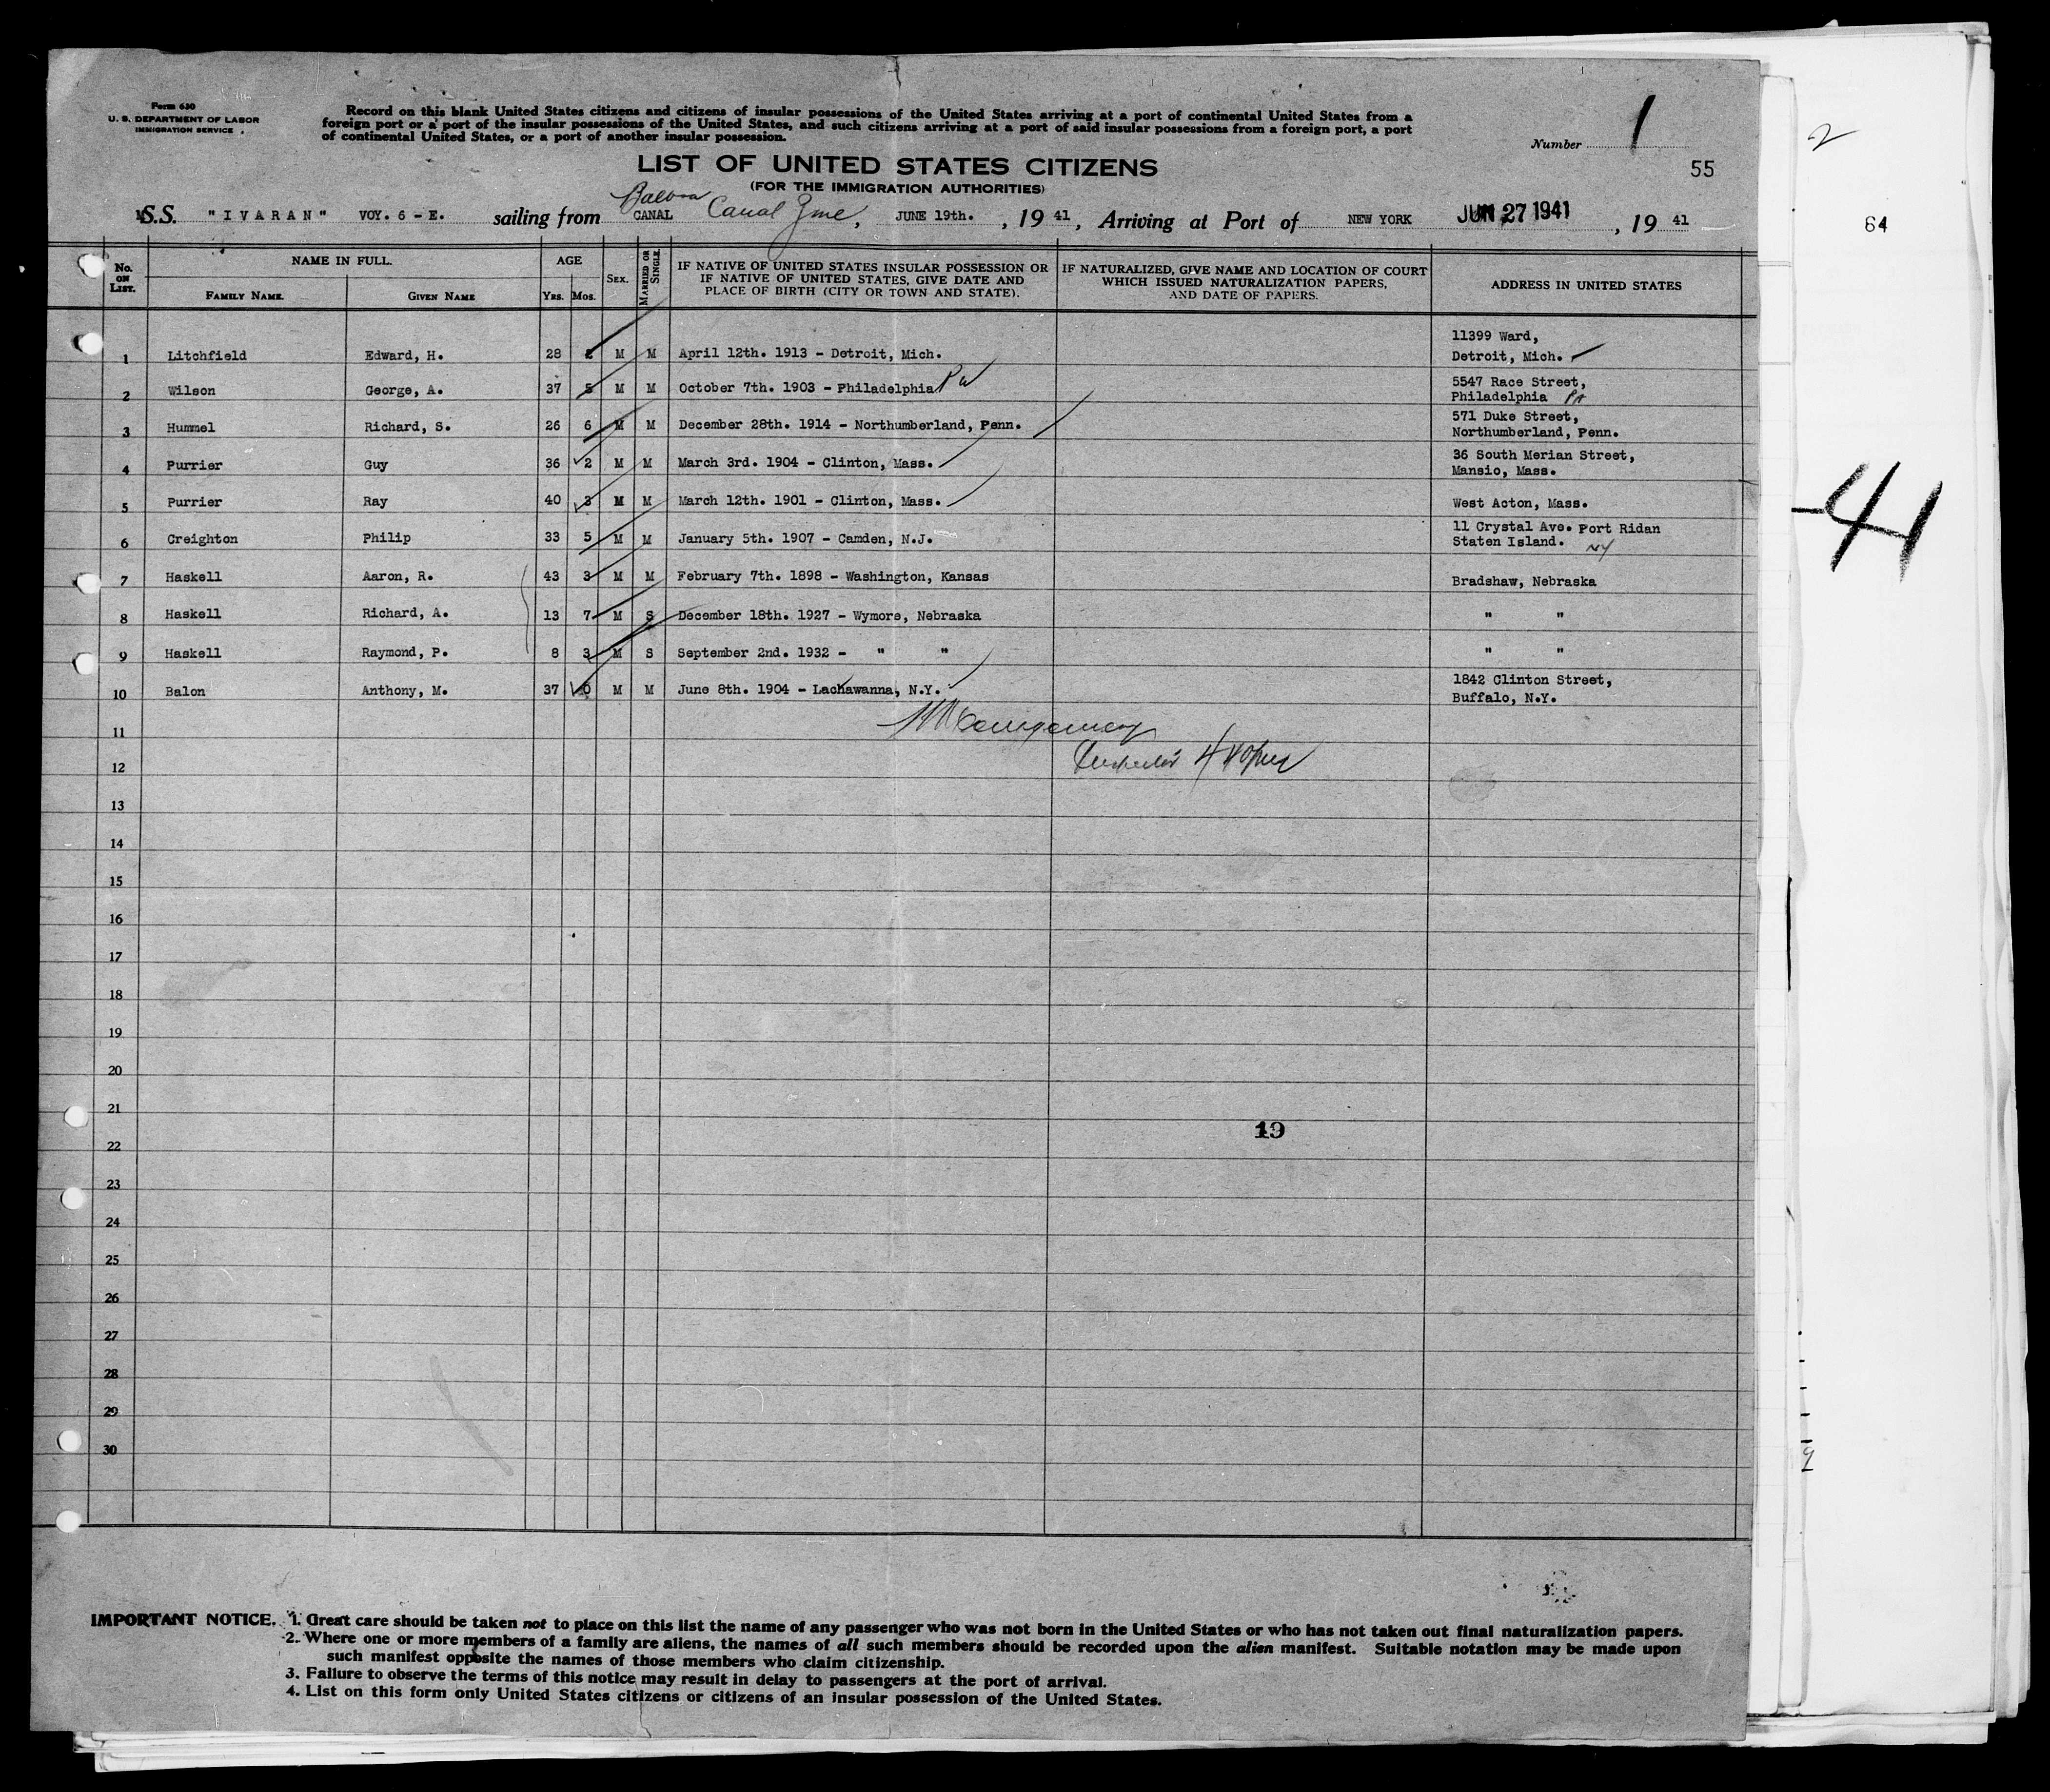 Form 630
U. S. DEPARTMENT OF LABOR
IMMIGRATION SERVICE
Record on this blank United States citizens and citizens of insular possessions of the United States arriving at a port of continental United States from a
foreign port or a port of the insular possessions of the United States, and such citizens arriving at a port of said insular possessions from a foreign port, a port
of continental United States, or a port of another insular possession.
Number 1
2
55
LIST OF UNITED STATES CITIZENS
(FOR THE IMMIGRATION AUTHORITIES)
Balboa
S.S. "IVARAN" VOY. 6 - E. sailing from CANAL Canal Zone, JUNE 19th., 19 41, Arriving at Port of NEW YORK JUN 27 1941, 19 41
64
No. ON LIST. NAME IN FULL. FAMILY NAME. GIVEN NAME AGE Yrs. Mos. SEX. MARRIED OR SINGLE. IF NATIVE OF UNITED STATES INSULAR POSSESSION OR IF NATIVE OF UNITED STATES, GIVE DATE AND PLACE OF BIRTH (CITY OR TOWN AND STATE). IF NATURALIZED, GIVE NAME AND LOCATION OF COURT WHICH ISSUED NATURALIZATION PAPERS, AND DATE OF PAPERS. ADDRESS IN UNITED STATES
11399 Ward,
1 Litchfield Edward, H. 28 2 M M April 12th. 1913 - Detroit, Mich. Detroit, Mich.
2 Wilson George, A. 37 5 M M October 7th. 1903 - Philadelphia Pa 5547 Race Street,
Philadelphia Pa
3 Hummel Richard, S. 26 6 M M December 28th. 1914 - Northumberland, Penn. 571 Duke Street,
Northumberland, Penn.
4 Purrier Guy 36 2 M M March 3rd. 1904 - Clinton, Mass. 36 South Merian Street,
Mansio, Mass.
5 Purrier Ray 40 3 M M March 12th. 1901 - Clinton, Mass. West Acton, Mass.
6 Creighton Philip 33 5 M M January 5th. 1907 - Camden, N.J. 11 Crystal Ave. Port Ridan
Staten Island. NY
7 Haskell Aaron, R. 43 3 M M February 7th. 1898 - Washington, Kansas Bradshaw, Nebraska
8 Haskell Richard, A. 13 7 M S December 18th. 1927 - Wymore, Nebraska " "
9 Haskell Raymond, P. 8 3 M S September 2nd. 1932 - " " " "
10 Balon Anthony, M. 37 0 M M June 8th. 1904 - Lachawanna, N.Y. 1842 Clinton Street,
Buffalo, N.Y.
-41
11
Inspector
12
13
14
15
16
17
18
19
20
21
19
22
23
24
25
26
27
28
29
30
IMPORTANT NOTICE. 1. Great care should be taken not to place on this list the name of any passenger who was not born in the United States or who has not taken out final naturalization papers.
2. Where one or more members of a family are aliens, the names of all such members should be recorded upon the alien manifest. Suitable notation may be made upon
such manifest opposite the names of those members who claim citizenship.
3. Failure to observe the terms of this notice may result in delay to passengers at the port of arrival.
4. List on this form only United States citizens or citizens of an insular possession of the United States.